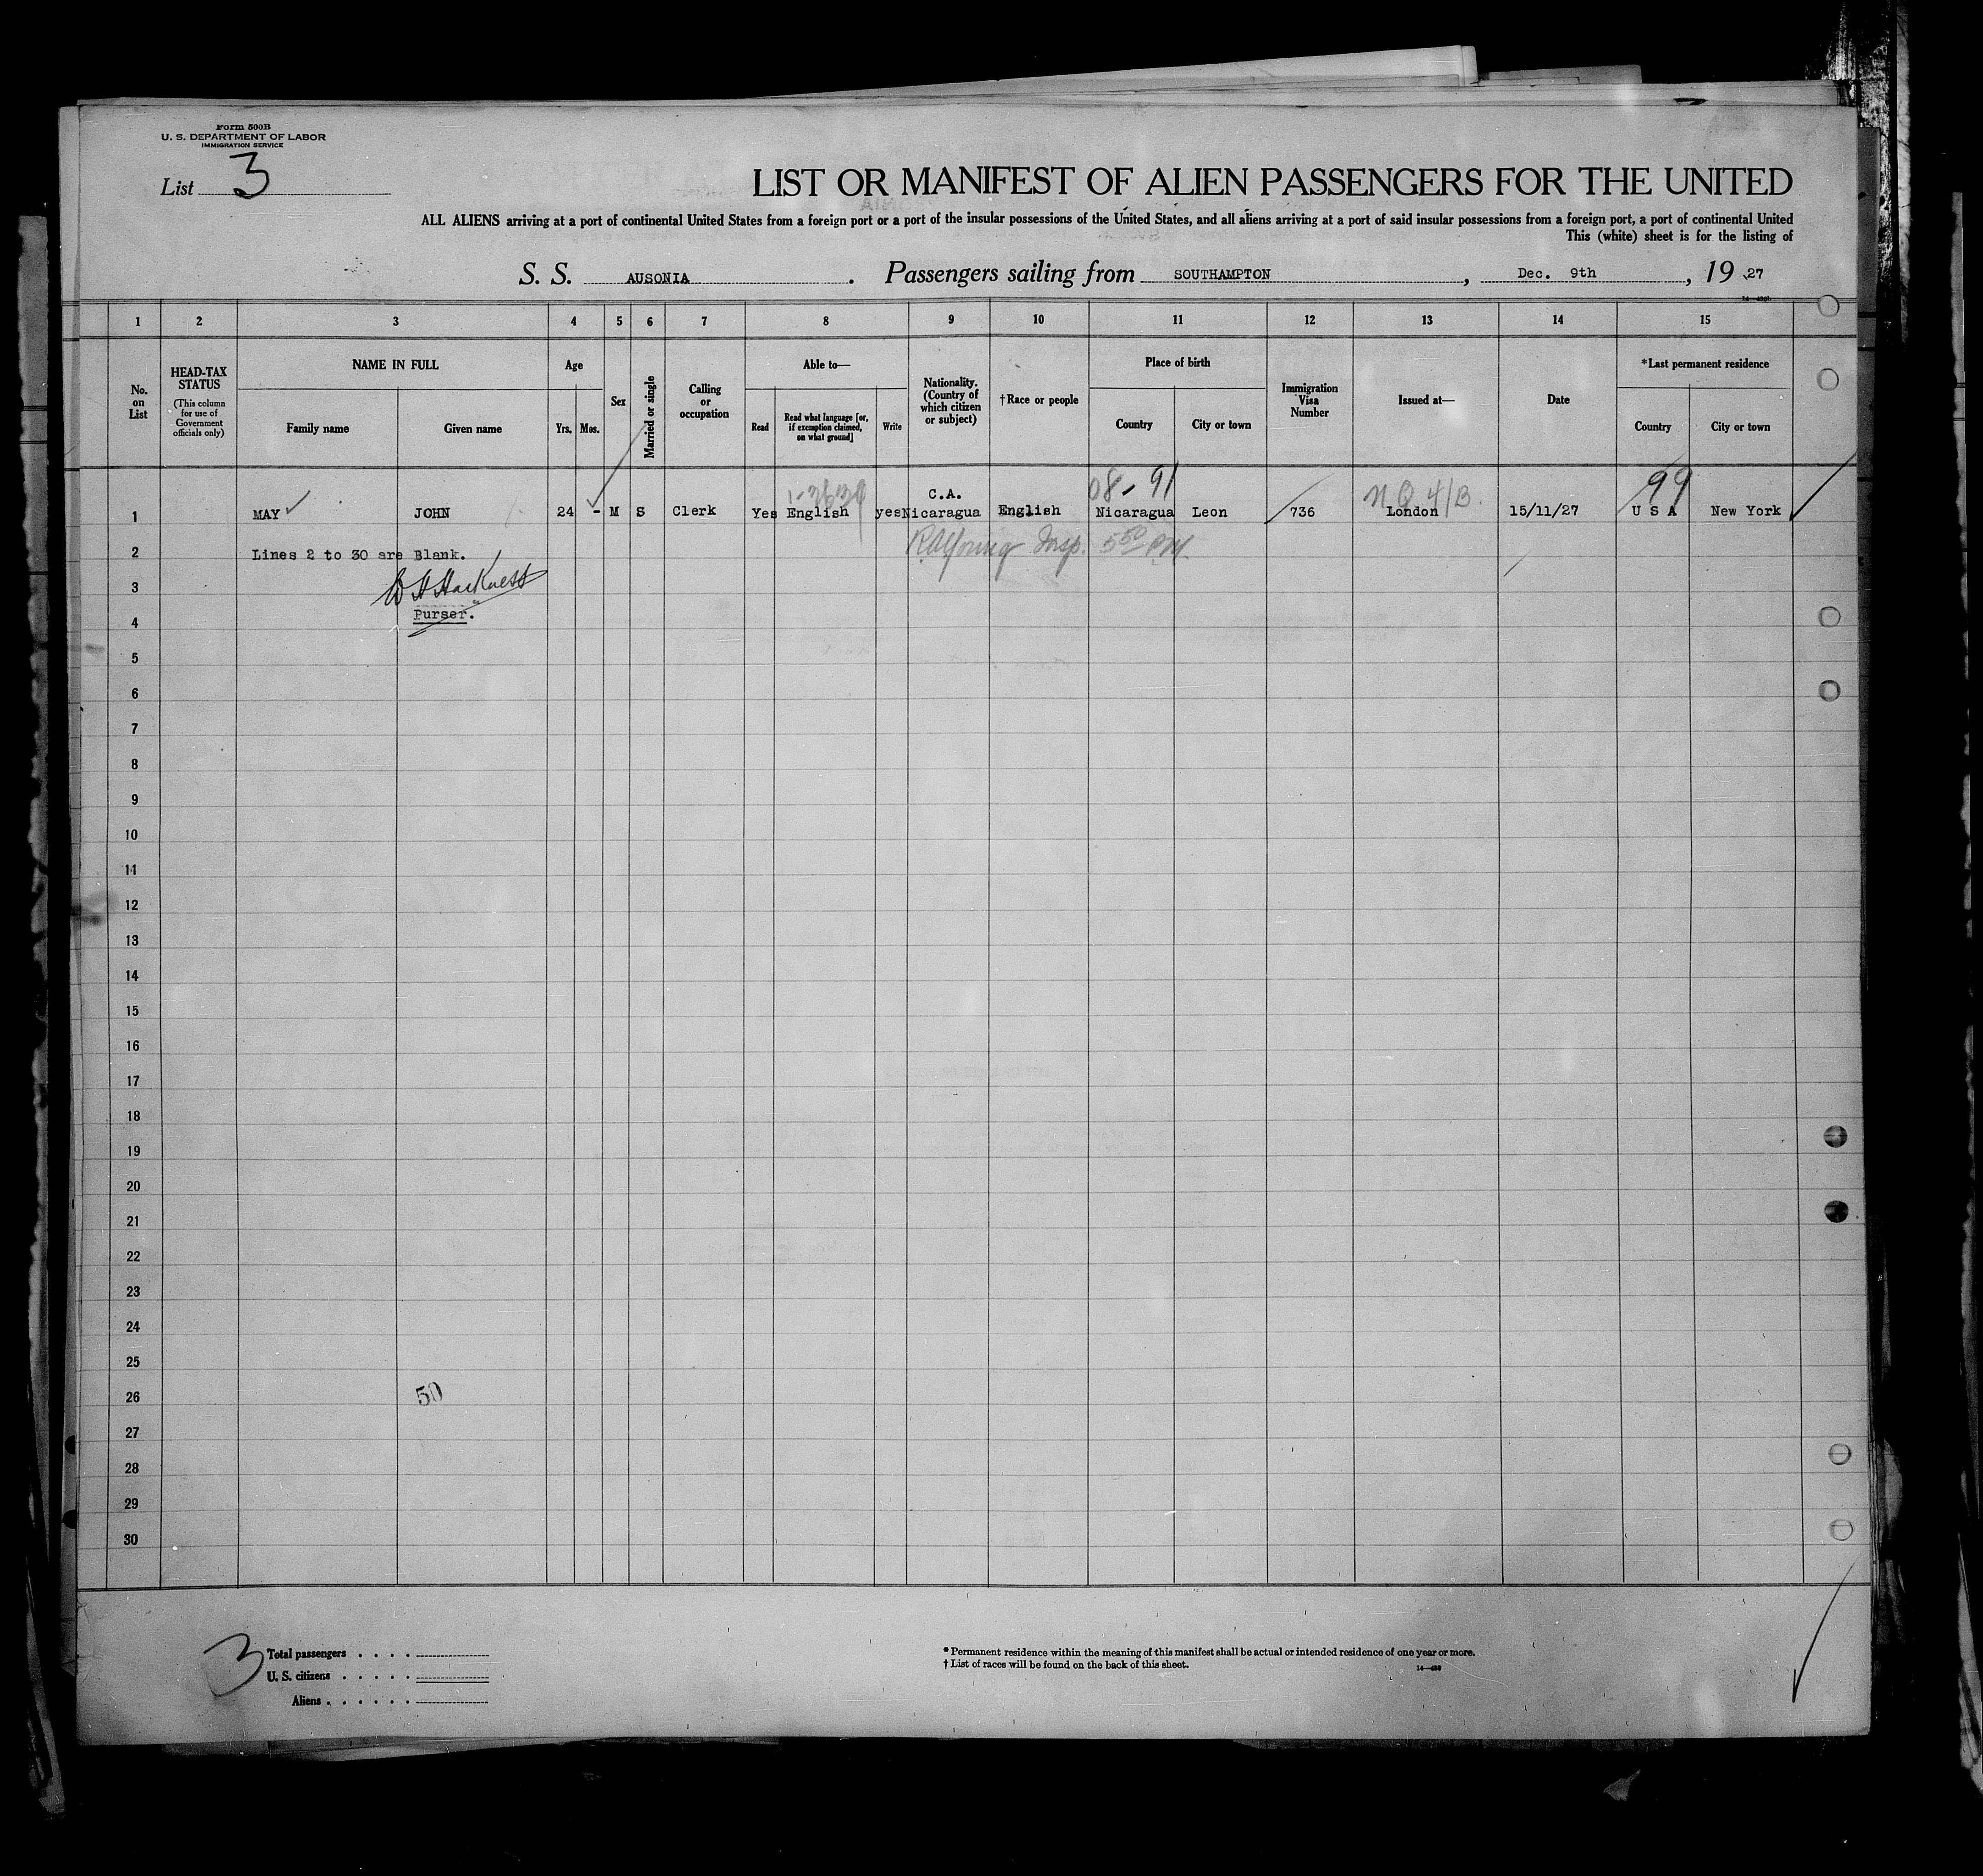 Form 500B
U. S. DEPARTMENT OF LABOR
IMMIGRATION SERVICE
List 3
LIST OR MANIFEST OF ALIEN PASSENGERS FOR THE UNITED
ALL ALIENS arriving at a port of continental United States from a foreign port or a port of the insular possessions of the United States, and all aliens arriving at a port of said insular possessions from a foreign port, a port of continental United
This (white) sheet is for the listing of
S. S. AUSONIA. Passengers sailing from SOUTHAMPTON, Dec. 9th, 19 27
1 2 3 4 5 6 7 8 9 10 11 12 13 14 15
No. on List
HEAD-TAX STATUS
(This column for use of Government officials only)
NAME IN FULL
Family name Given name
Age
Yrs. Mos.
Sex
Married or single
Calling or occupation
Able to—
Read
Read what language [or, if exemption claimed, on what ground]
Write
Nationality. (Country of which citizen or subject)
†Race or people
Place of birth
Country City or town
Immigration Visa Number
Issued at—
Date
*Last permanent residence
Country City or town
C.A. 08-91 99
1 MAY JOHN 24 - M S Clerk Yes English yes Nicaragua English Nicaragua Leon 736 London 15/11/27 U S A New York
2 Lines 2 to 30 are Blank. Insp. 5 50 P.M.
3
Purser.
4
5
6
7
8
9
10
11
12
13
14
15
16
17
18
19
20
21
22
23
24
25
26 50
27
28
29
30
3
Total passengers . . . .
U. S. citizens . . . . .
Aliens . . . . . .
* Permanent residence within the meaning of this manifest shall be actual or intended residence of one year or more.
† List of races will be found on the back of this sheet.